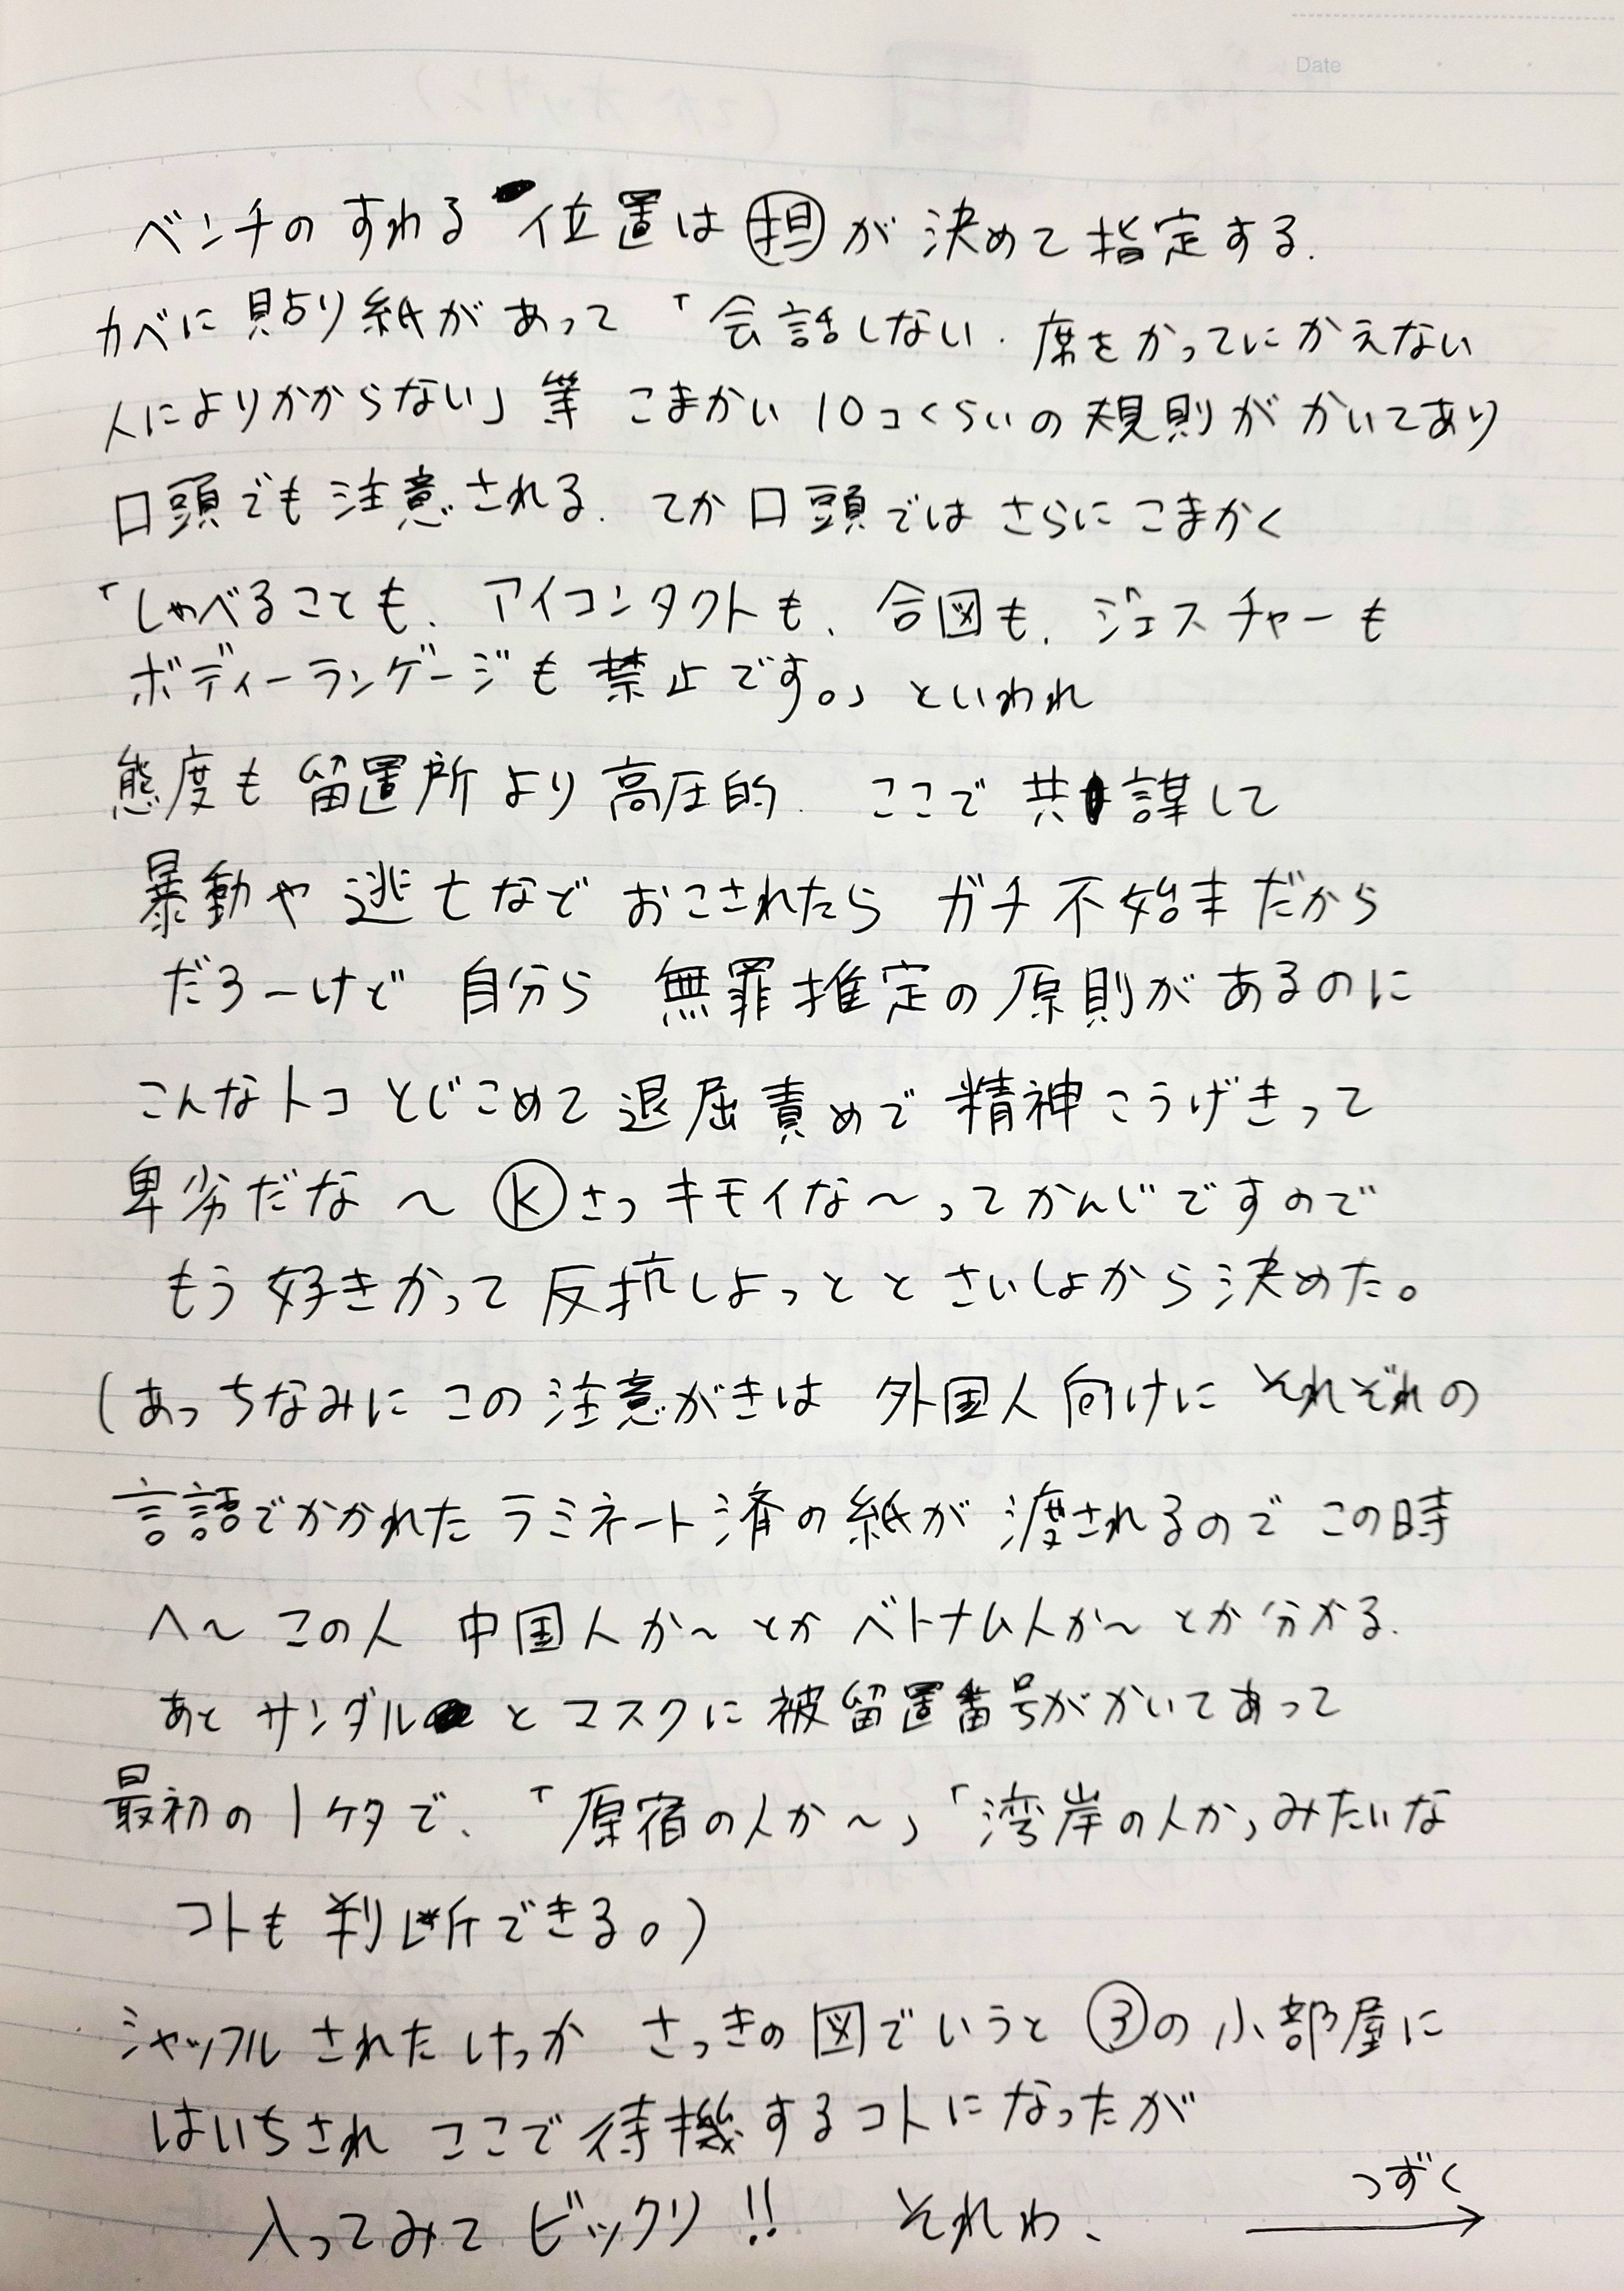 Date
ベンチのすわる位置は㊀担が決めて指定する.
カベに貼り紙があって「会話しない. 席をかってにかえない
人によりかからない」等 こまかい10コくらいの規則がかいてあり
口頭でも注意される. てか口頭ではさらにこまかく
「しゃべることも、アイコンタクトも、合図も、ジェスチャーも
ボディーランゲージも禁止です。」といわれ
態度も留置所より高圧的. ここで共謀して
暴動や逃亡などおこされたらガチ不始末だから
だろーけど 自分ら 無罪推定の原則があるのに
こんなトコとじこめて退屈責めで精神こうげきって
卑劣だな〜 Ⓚさっキモイな〜ってかんじですので
もう好きかって反抗しよっととさいしょから決めた。
(あっちなみにこの注意がきは 外国人向けにそれぞれの
言語でかかれたラミネート済の紙が渡されるのでこの時
へ〜この人 中国人か〜とかベトナム人か〜とか分かる.
あとサンダルとマスクに被留置番号がかいてあって
最初の1ケタで、「原宿の人か〜」「湾岸の人か」みたいな
コトも判断できる。)
シャッフルされたけっか さっきの図でいうと③の小部屋に
はいちされ ここで待機するコトになったが
入ってみてビックリ!! それわ、
つずく
→